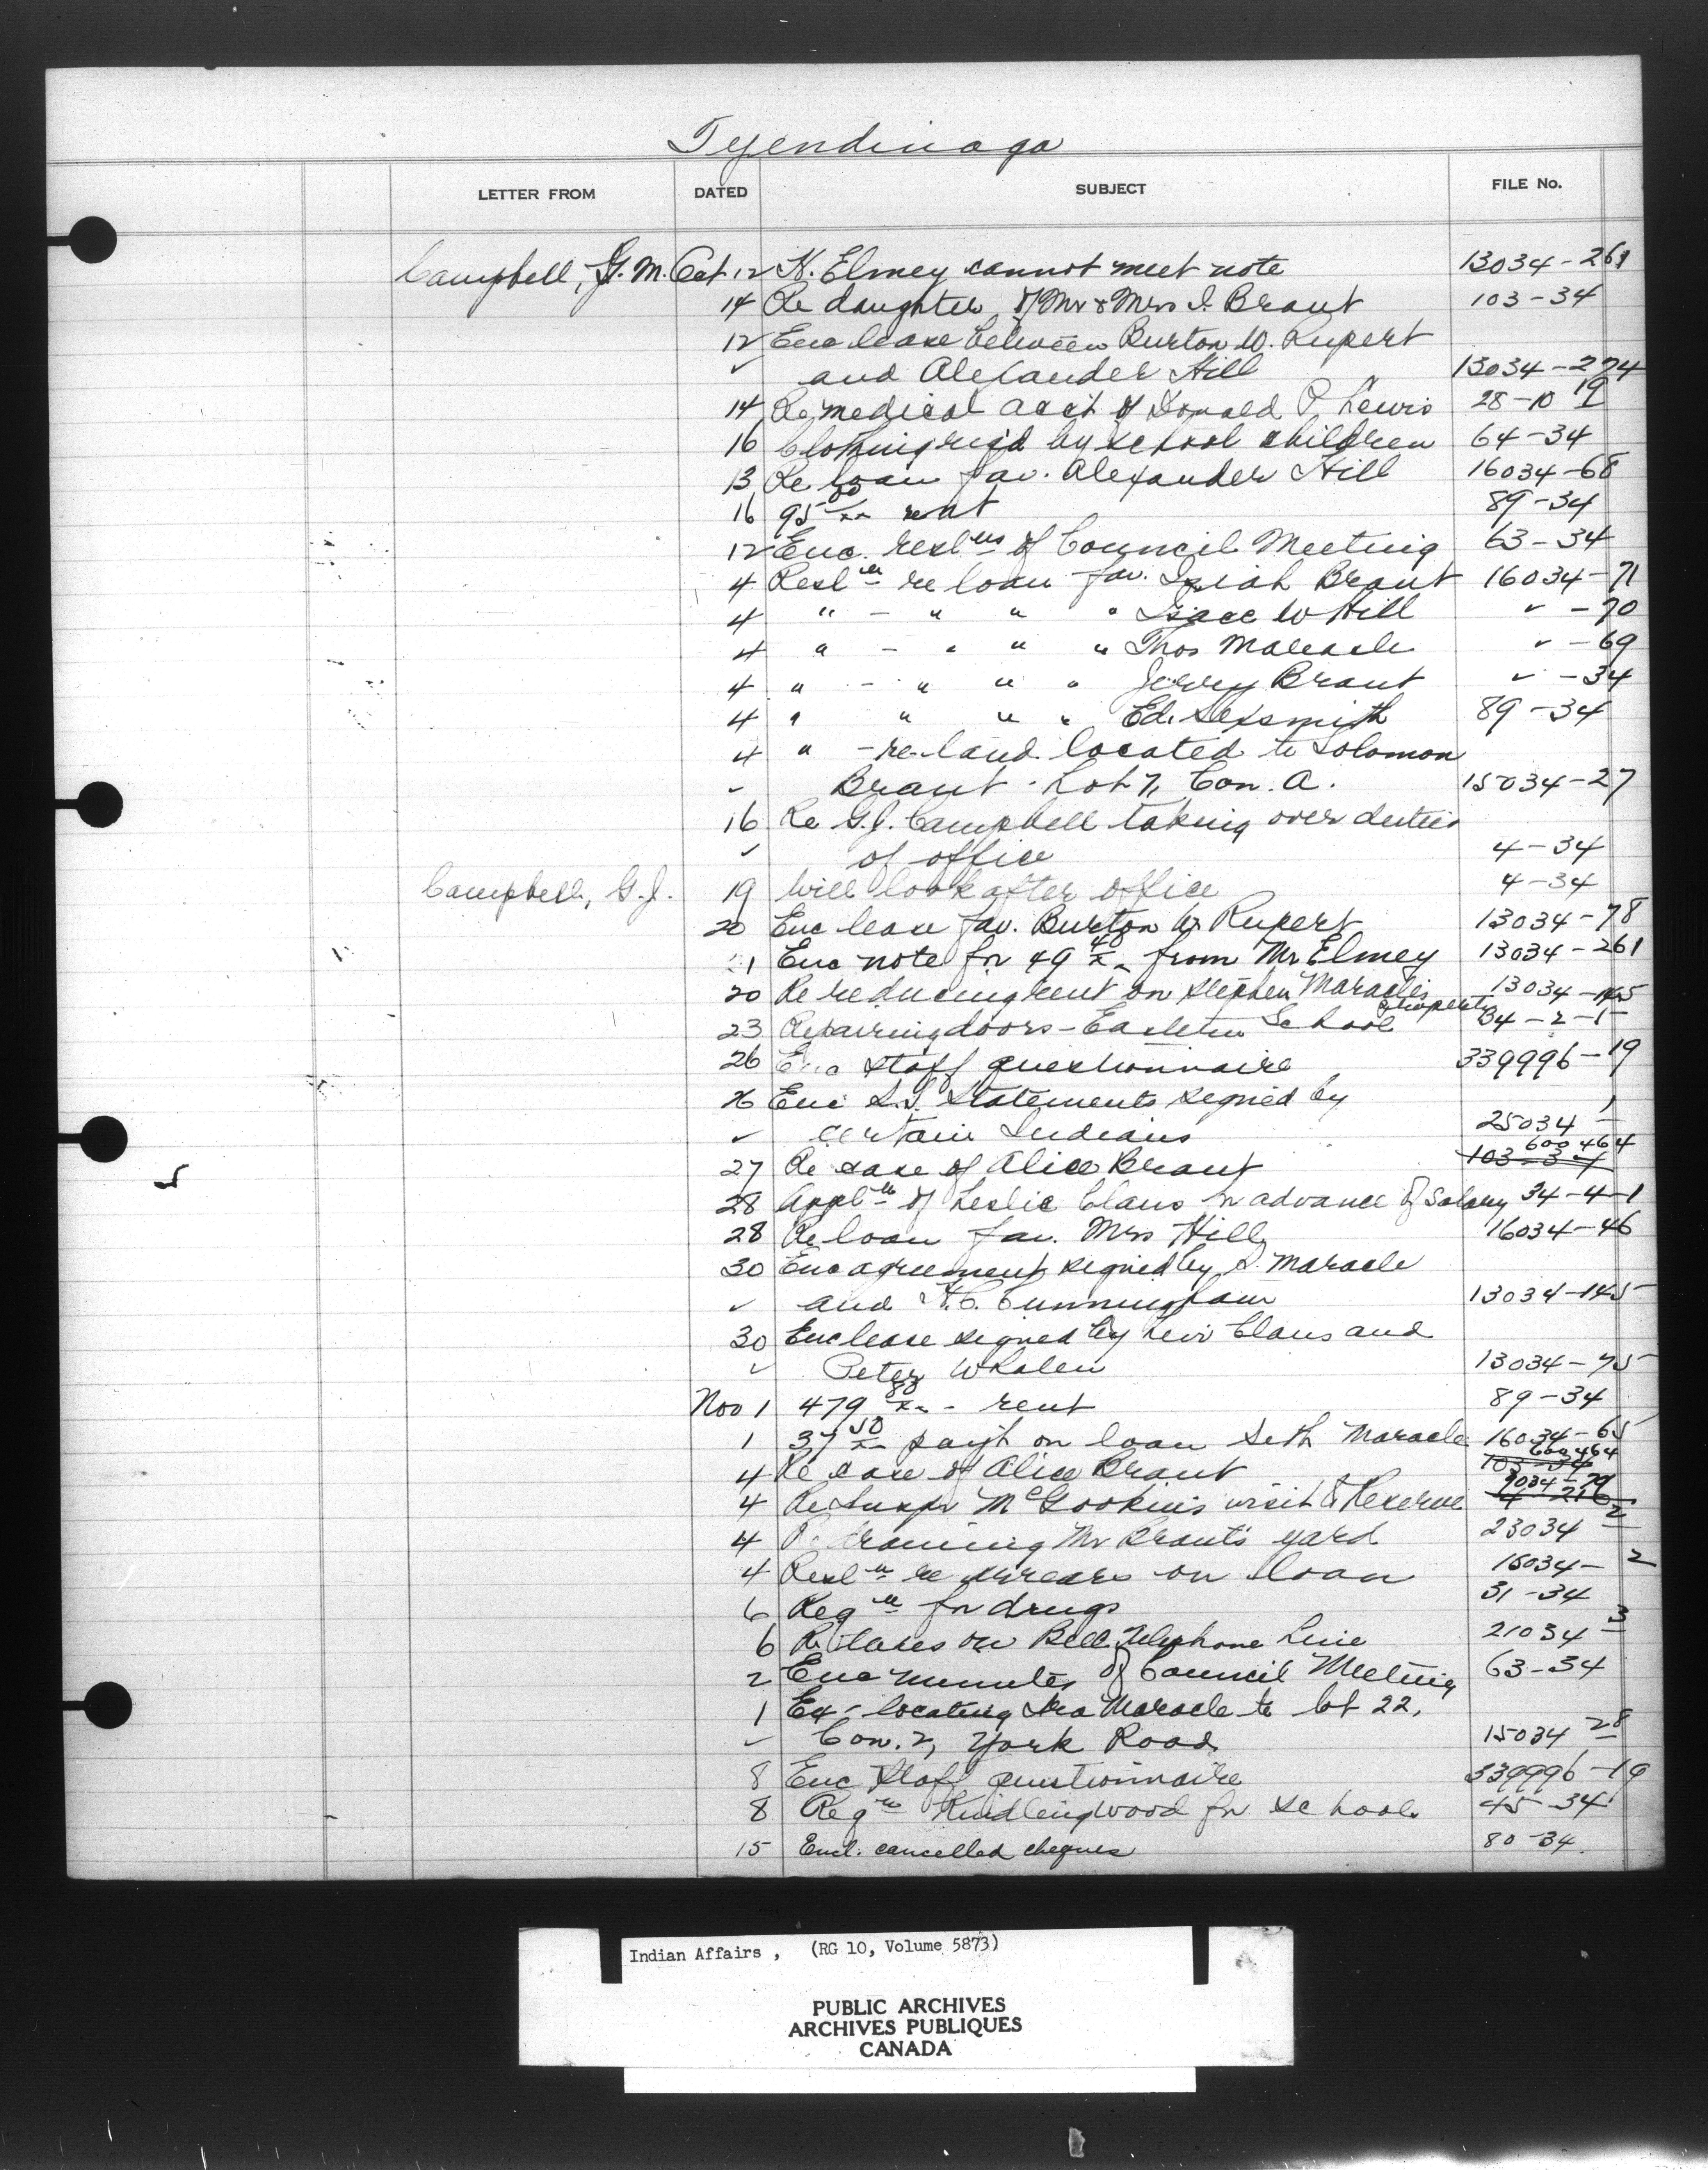 Tyendinaga
LETTER FROM DATED SUBJECT FILE No.
Campbell, G. M. Oct 12 K. Elmey cannot meet note 13034-261
14 Re daughter of Mr & Mrs I. Brant 103-34
12 Enc lease between Burton W. Rupert
✓ and Alexander Hill 13034-274
14 Re medical acct of Donald P Lewis 28-10 19
16 Clothing req'd by school children 64-34
13 Re loan fav. Alexander Hill 16034-68
16 95 00/xx rent 89-34
12 Enc. reslns of Council Meeting 63-34
4 Resln re loan fav. Isiah Brant 16034-71
4 " - " " " Isaac W Hill ✓ -70
4 " - " " " Thos Maracle ✓ -69
4 " - " " " Jerry Brant ✓ -34
4 " " " " Ed. Sexsmith 89-34
4 " - re land located to Solomon
✓ Brant - Lot 7, Con. A. 15034-27
16 Re G.J. Campbell taking over duties
✓ of office 4-34
Campbell, G.J. 19 Will look after office 4-34
20 Enc lease fav. Burton W. Rupert 13034-78
21 Enc note for 49 40/xx from Mr Elmey 13034-261
20 Re reducing rent on Stephen Maracle's property 13034-145
23 Repairing doors - Eastern School 34-2-1
26 Enc staff questionnaire 339996-19
26 Enc S.S. Statements signed by
✓ certain Indians 25034-1
27 Re case of Alice Brant 103-34 600464
28 Appln of Leslie Claus for advance of Salary 34-4-1
28 Re loan fav. Mrs Hill 16034-46
30 Enc agreement signed by S. Maracle
✓ and H.C. Cunningham 13034-145
30 Enc lease signed by Levi Claus and
✓ Peter Whalen 13034-75
Nov 1 479 80/xx - rent 89-34
1 37 50/xx pay't on loan Seth Maracle 16034-65
4 Re case of Alice Brant 103-34 600464
4 Re Inspr McGookin's visit to Reserve 9034-79
4 Re draining Mr Brant's yard 23034-2
4 Resln re arrears on loan 16034-2
6 Reqn for drugs 31-34
6 Re taxes on Bell Telephone Line 21034-3
2 Enc minutes of Council Meeting 63-34
1 Ex - locating Ira Maracle to lot 22,
✓ Con. 2, York Road 15034 28
8 Enc Staff questionnaire 339996-19
8 Reqn Kindling wood for school 45-34
15 Encl. cancelled cheques 80-34
Indian Affairs, (RG 10, Volume 5873)
PUBLIC ARCHIVES
ARCHIVES PUBLIQUES
CANADA